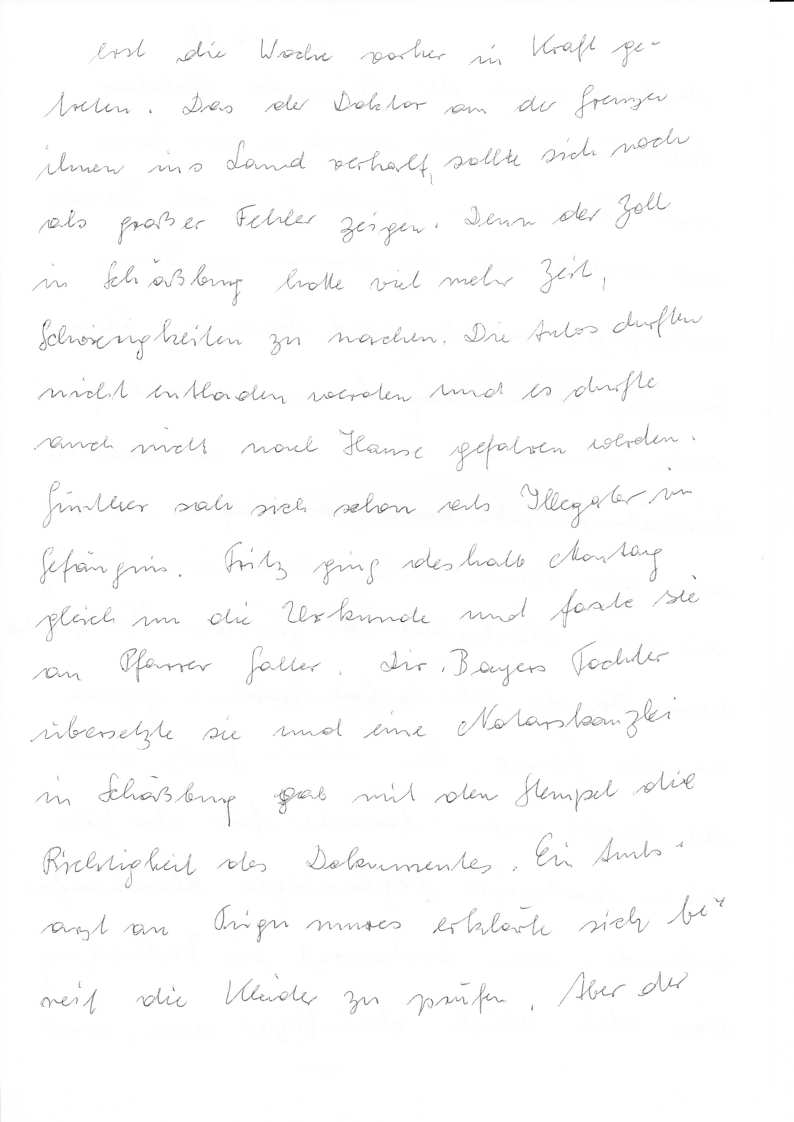 erst die Woche vorher in Kraft ge-
treten. Das der Doktor an der Grenze
ihnen ins Land verhalf, sollte sich noch
als großer Fehler zeigen. Denn der Zoll
in Schäßburg hatte viel mehr Zeit,
Schwierigkeiten zu machen. Die Autos durften
nicht entladen werden und es durfte
auch nicht nach Hause gefahren werden.
Günther sah sich schon als Illegaler im
Gefängnis. Fritz ging deshalb Montag
gleich um die Urkunde und faxte sie
an Pfarrer Galler. Dir. Bayers Tochter
übersetzte sie und eine Notarskanzlei
in Schäßburg gab mit den Stempel die
Richtigkeit des Dokumentes. Ein Amts-
arzt an erklärte sich be-
reit die Kleider zu prüfen. Aber der